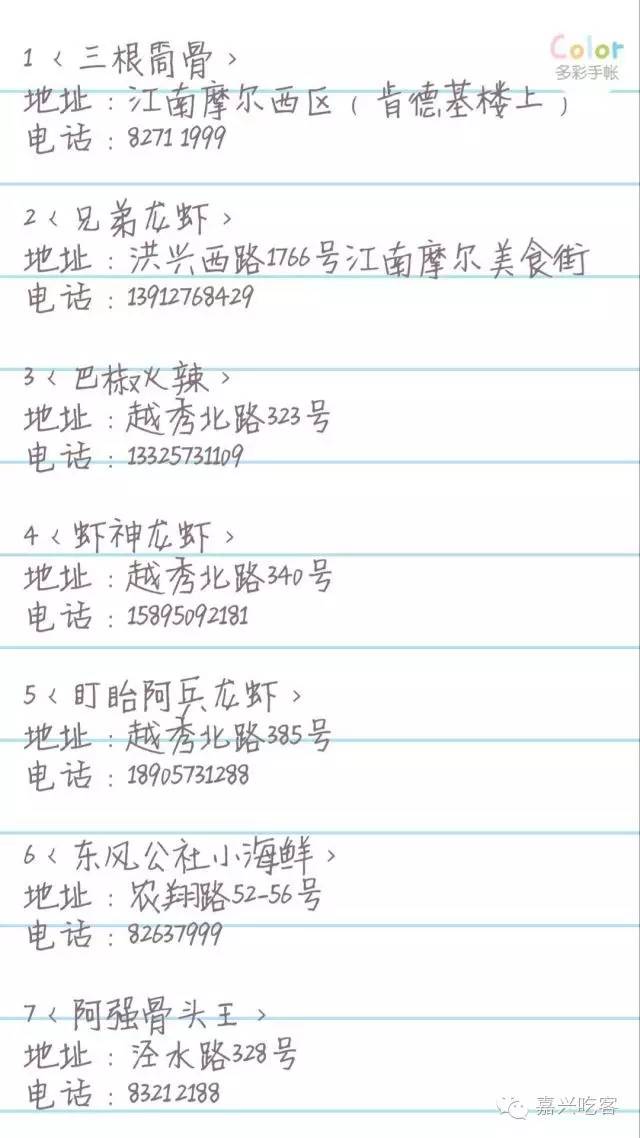 Color
多彩手帐
1〈三根筒骨〉
地址：江南摩尔西区（肯德基楼上）
电话：8271 1999
2〈兄弟龙虾〉
地址：洪兴西路1766号江南摩尔美食街
电话：13912768429
3〈巴椒火辣〉
地址：越秀北路323号
电话：13325731109
4〈虾神龙虾〉
地址：越秀北路340号
电话：15895092181
5〈盯眙阿兵龙虾〉
地址：越秀北路385号
电话：18905731288
6〈东风公社小海鲜〉
地址：农翔路52-56号
电话：82637999
7〈阿强骨头王〉
地址：泾水路328号
电话：83212188
嘉兴吃客